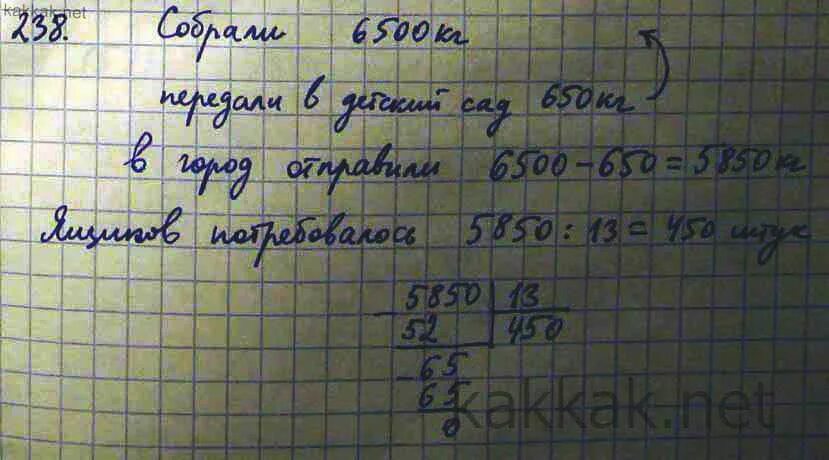 kakkak.net
238. Собрали 6500 кг
передали в детский сад 650 кг
в город отправили 6500 - 650 = 5850 кг
Ящиков потребовалось 5850 : 13 = 450 штук
5850 | 13
52 | 450
65
65
0
kakkak.net